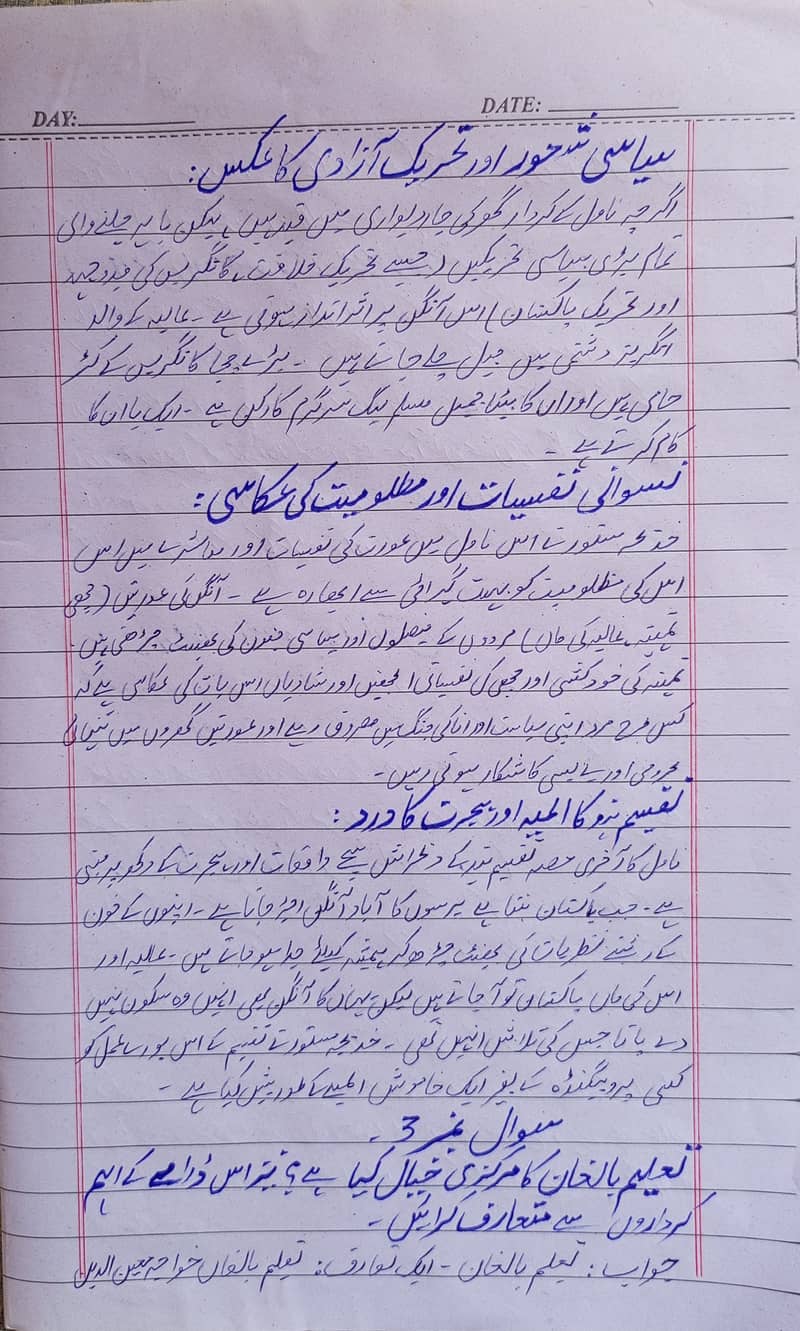 DAY:
DATE:
سیاسی شعور اور تحریک آزادی کا عکس:
اگرچہ ناول کے کردار گھر کی چار دیواری میں قید ہیں، لیکن باہر چلنے والی
تمام بڑی سیاسی تحریکیں (جیسے تحریک خلافت، کانگریس کی جدوجہد
اور تحریک پاکستان) اس آنگن پر اثر انداز ہوتی ہے۔ عالیہ کے والد
انگریز دشمنی میں جیل چلے جاتے ہیں۔ بڑے چچا کانگریس کے کٹر
حامی ہیں اور ان کا بیٹا جمیل مسلم لیگ سرگرم کارکن ہے۔ ایک یا ان کا
کام کرتے ہے۔
نسوانی نفسیات اور مظلومیت کی عکاسی:
خدیجہ مستور نے اس ناول میں عورت کی نفسیات اور معاشرے میں اس
اس کی مظلومیت کو بہت گہرائی سے ابھارہ ہے۔ آنگن کی عورتیں (چھمی
تہمینہ، عالیہ کی ماں) مردوں کے فیصلوں اور سیاسی جنون کی بھینٹ چڑھتی ہیں۔
تہمینہ کی خودکشی اور چھمی کی نفسیاتی الجھنیں اور شادیاں اس بات کی عکاسی ہے کہ
کس طرح مرد اپنی سیاست اور انا کی جنگ میں مصروف رہے اور عورتیں گھروں میں تنہائی
محرومی اور بے بسی کا شکار ہوتی رہیں۔
تقسیم ہند کا المیہ اور ہجرت کا درد:
ناول کا آخری حصہ تقسیم ہند کے دلخراش سچے واقعات اور ہجرت کے دکھ پر مبنی
ہے۔ جب پاکستان بنتا ہے برسوں کا آباد آنگن اجڑ جاتا ہے۔ اپنوں کے خون
کے رشتے نظریات کی بھینٹ چڑھ کر ہمیشہ کیلئے جدا ہو جاتے ہیں۔ عالیہ اور
اس کی ماں پاکستان تو آ جاتے ہیں لیکن یہاں کا آنگن بھی انہیں وہ سکون نہیں
دے پاتا جس کی تلاش انہیں تھی۔ خدیجہ مستور نے تقسیم کے اس پورے عمل کو
کسی پروپیگنڈہ کے بغیر ایک خاموش المیے کے طور پیش کیا ہے۔
سوال نمبر 3۔
تعلیم بالغان کا مرکزی خیال کیا ہے؟ نیز اس ڈرامے کے اہم
کرداروں سے متعارف کرائیں۔
جواب: تعلیم بالغان - ایک تعارف: تعلیم بالغاں خواجہ معین الدین